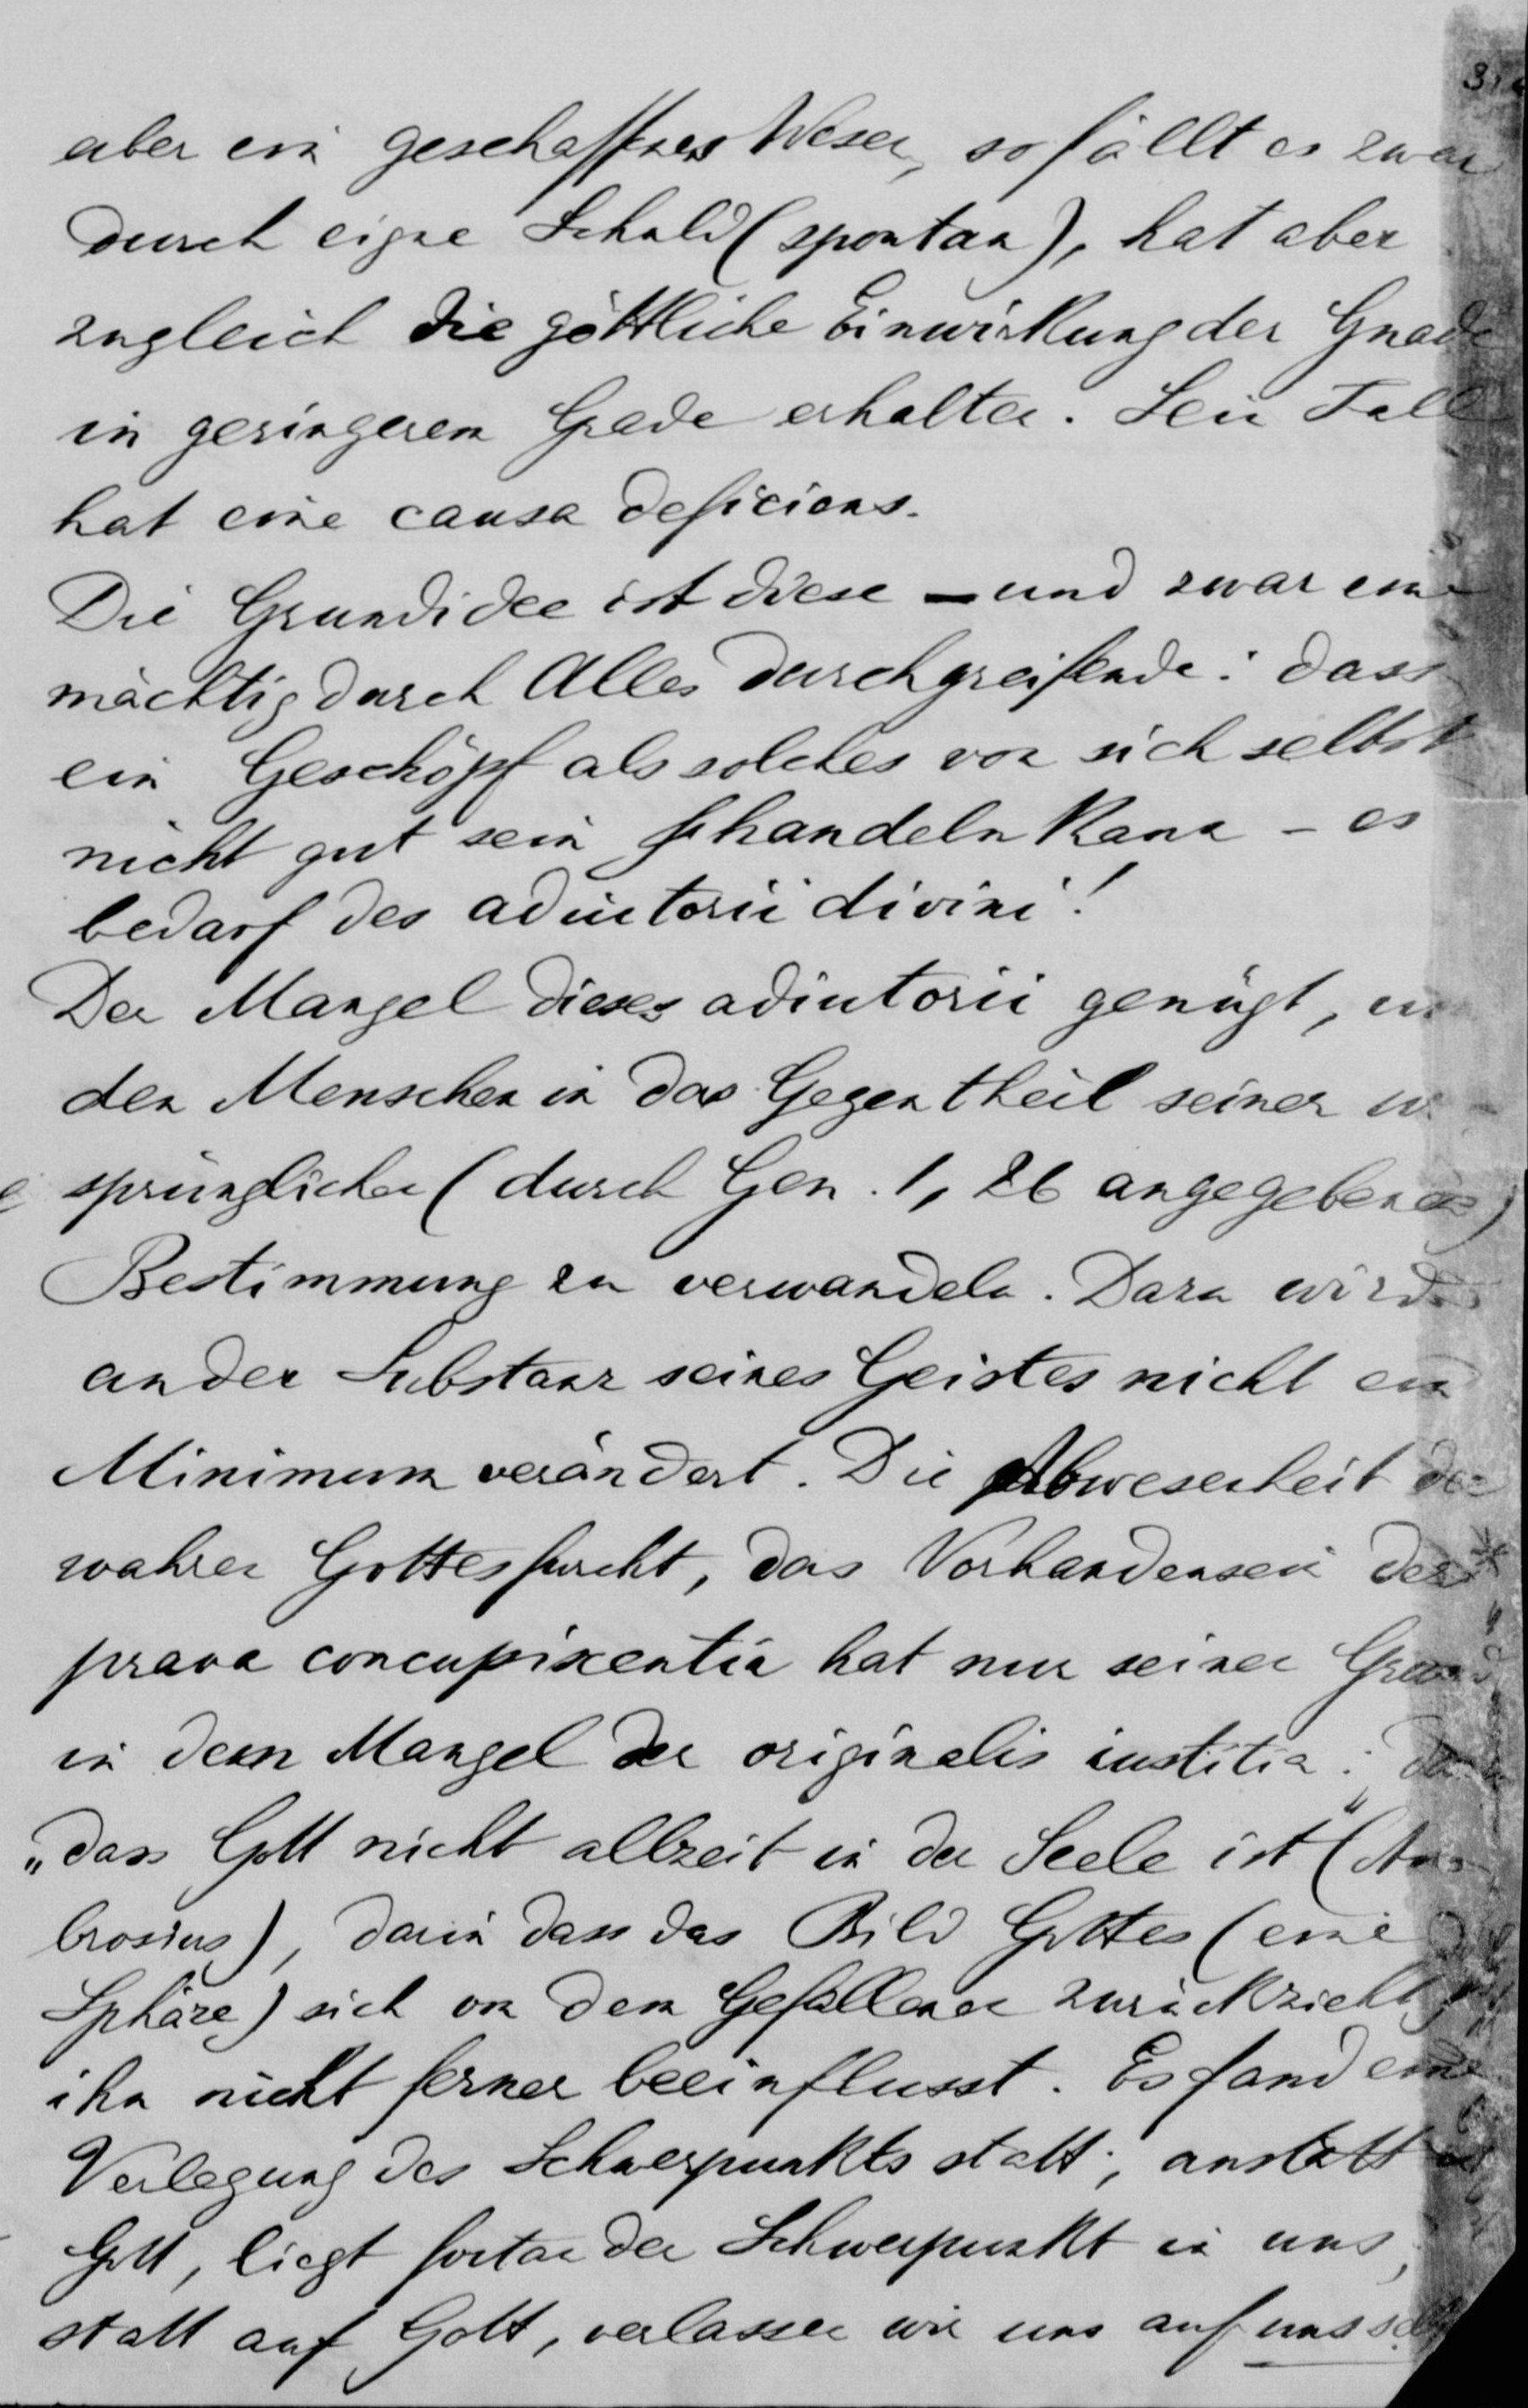 aber ein geschaffnes Wesen, so fällt es zwar
durch eigne Schuld (spontan), hat aber
zugleich die göttliche Einwirkung der Gnade
in geringerem Grade erhalten. Sein Fall
hat eine causa deficiens.
Die Grundidee ist diese – und zwar eine
mächtig durch Alles durchgreifende: dass
ein Geschöpf als solches von sich selbst
nicht gut sein handeln kann – es
bedarf des adiutorii divini!
Der Mangel dieses adiutorii genügt, um
den Menschen in das Gegentheil seiner ur
sprünglichen (durch Gen. 1, 26 angegebenen)
Bestimmung zu verwandeln. Dazu wird
an der Substanz seines Geistes nicht ein
Minimum verändert. Die Abwesenheit der
wahren Gottesfurcht, das Vorhandensein der
prava concupixentia hat nur seinen Grund
in dem Mangel der originalis iustitia:
„dass Gott nicht allzeit in der Seele ist“ (Am
brosius), darin dass das Bild Gottes (eine
Sphäre) sich von dem Gefallenen zurückzieht
ihn nicht ferner beeinflusst. Es fand eine
Verlegung des Schwerpunkts statt; anstatt
Gott, liegt fortan der Schwerpunkt in uns,
statt auf Gott, verlassen wir uns auf uns selbst